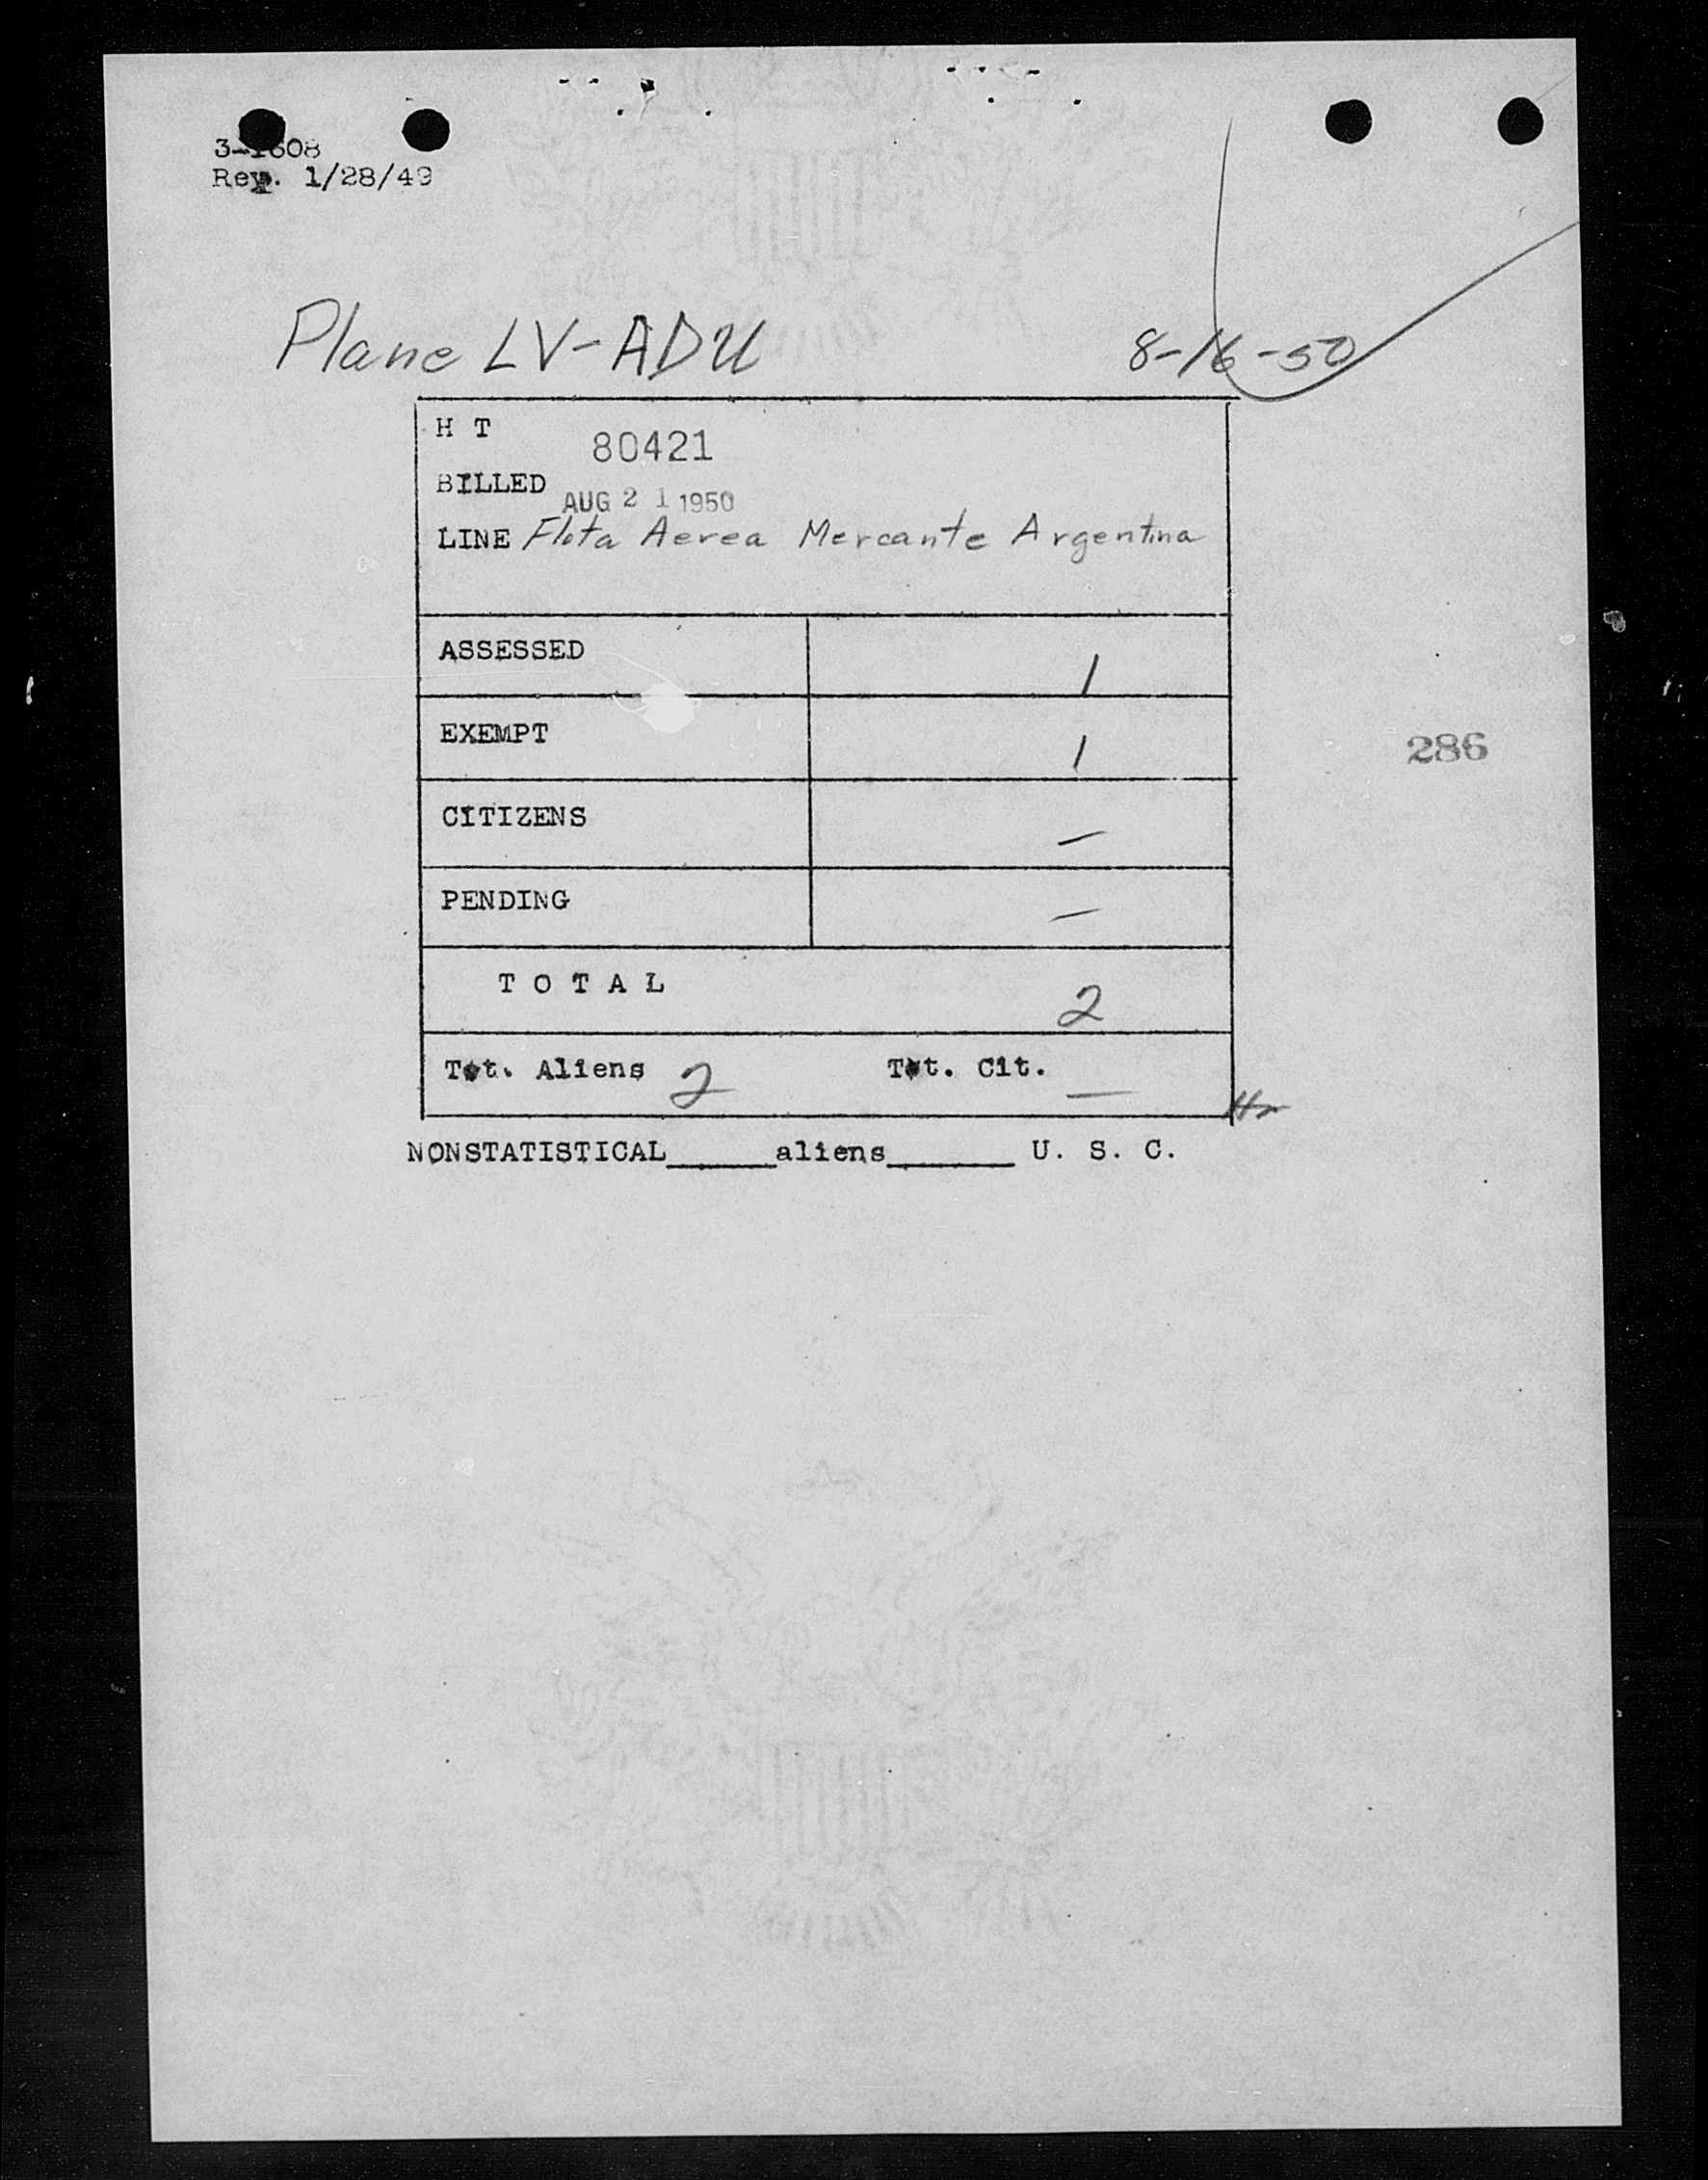 3-1608
Rev. 1/28/49
Plane LV-ADU 8-16-50
H T 80421
BILLED AUG 21 1950
LINE Flota Aerea Mercante Argentina
ASSESSED 1
EXEMPT 1
286
CITIZENS —
PENDING —
TOTAL 2
Tot. Aliens 2 Tot. Cit. —
NONSTATISTICAL______aliens_______ U. S. C.